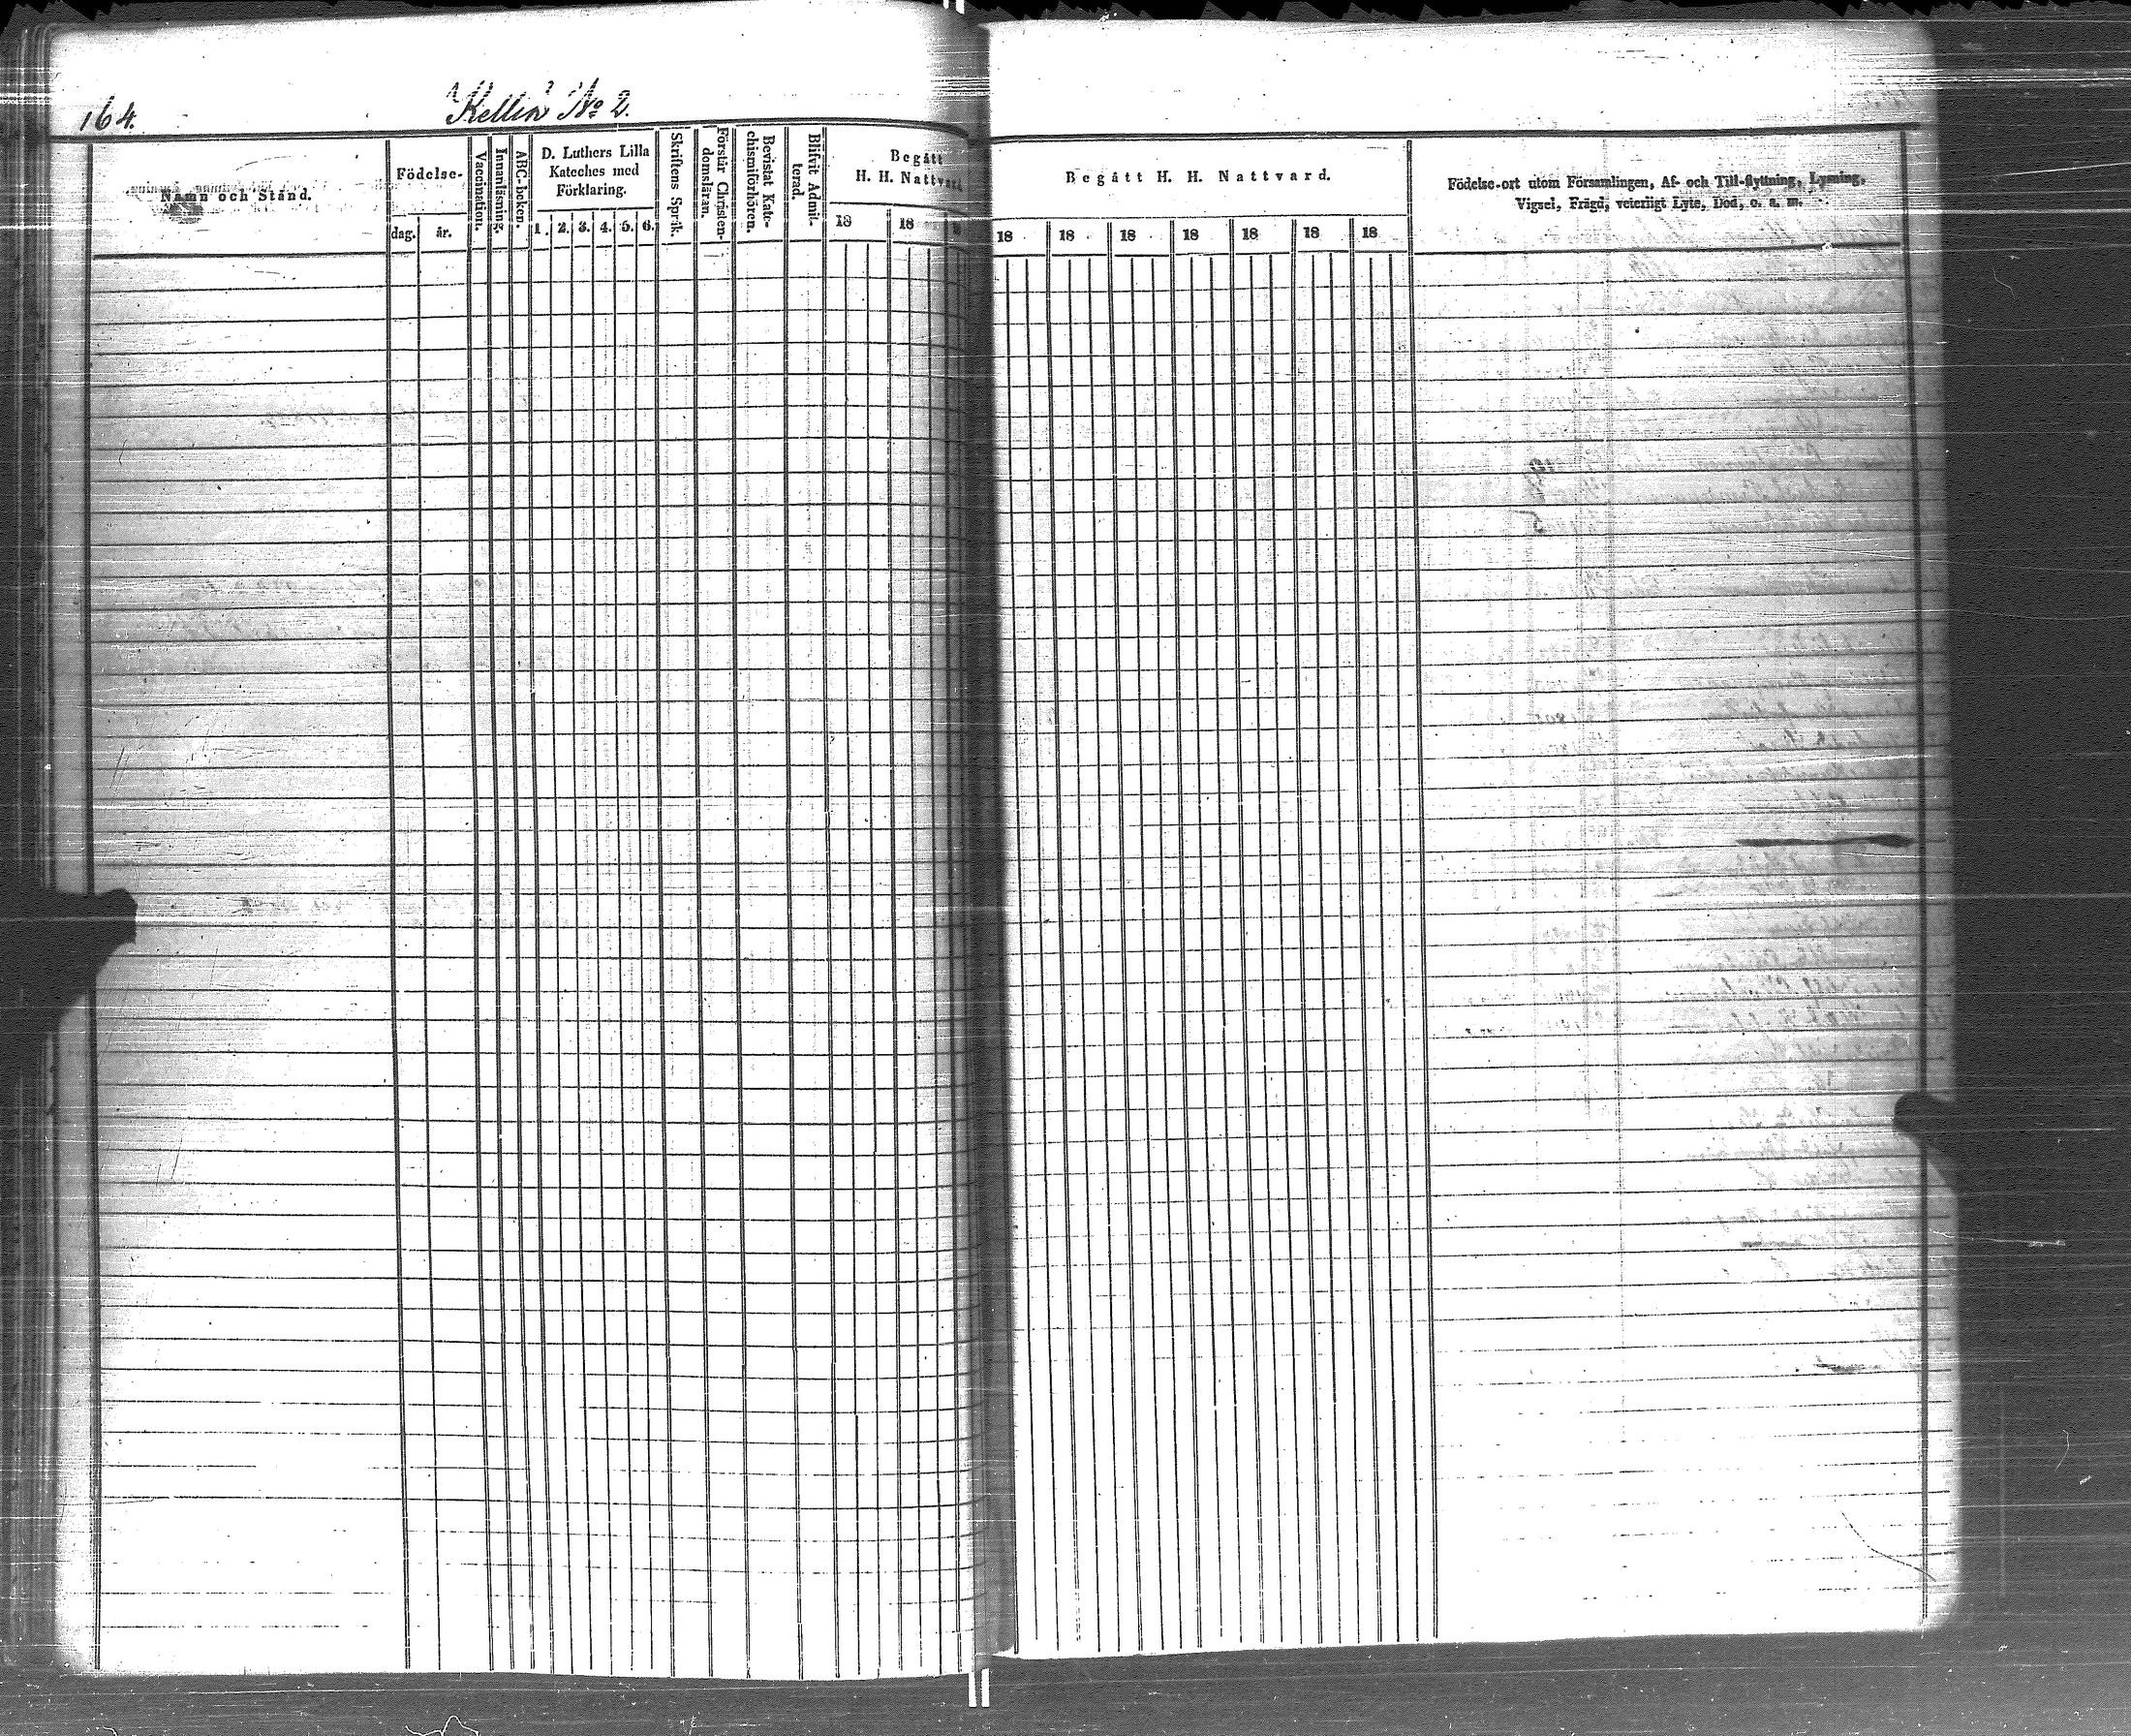 164.
Kellin No 2.
Namn och Stånd.
Födelse-
dag.
år.
Vaccination.
Innanläsning.
ABC-boken.
D. Luthers Lilla
Kateches med
Förklaring.
1. 2. 3. 4. 5. 6.
Skriftens Språk.
Förstår Christen-
domsläran.
Bevistat Kate-
chismiförhören.
Blifvit Admit-
terad.
Begått
H. H. Nattvard
18 18
Begått H. H. Nattvard.
18 18 18 18 18 18 18
Födelse-ort utom Församlingen, Af- och Till-flyttning, Lysning,
Vigsel, Frägd, veterligt Lyte, Död, o. s. m.